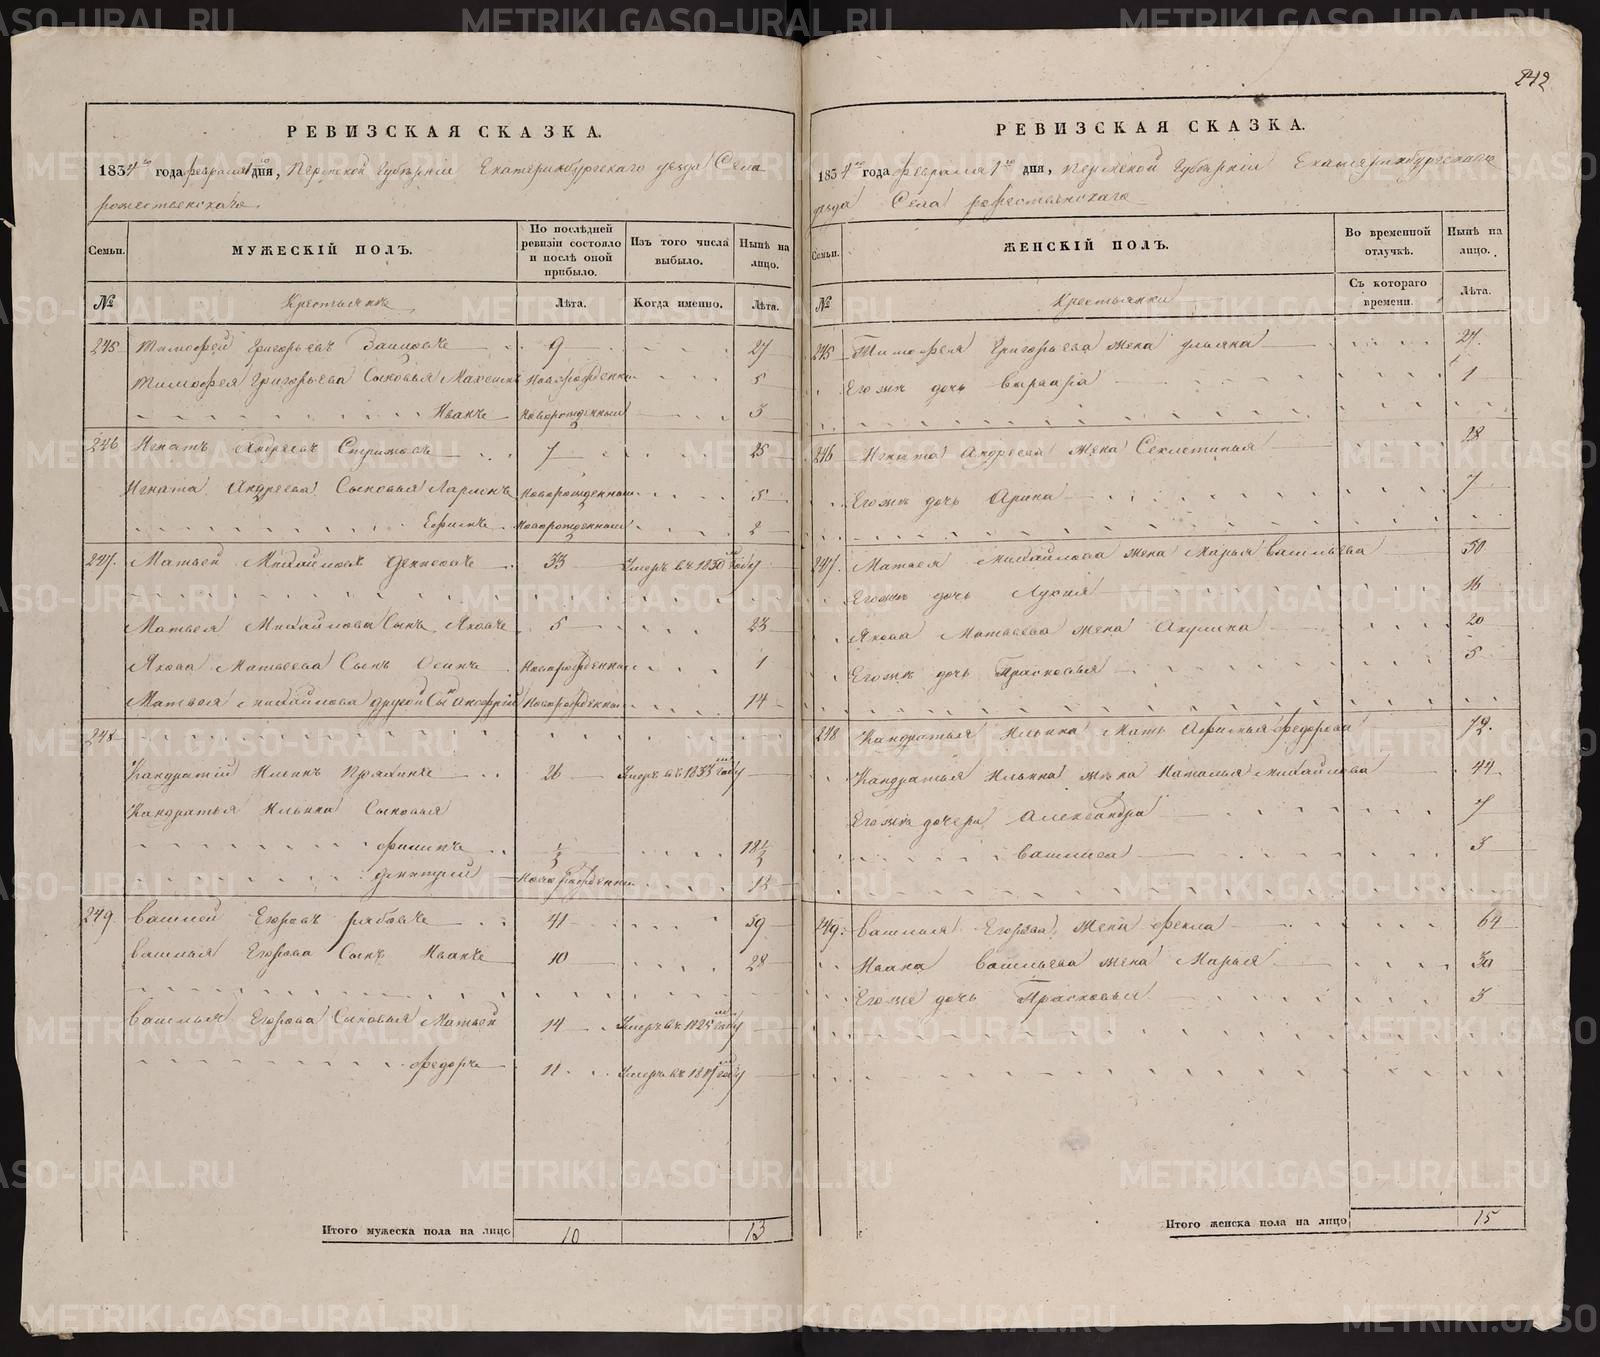 242
РЕВИЗСКАЯ СКАЗКА.
1834го года февраля 1го дня, Пермской Губернiи Екатеринбургскаго уезда Села
рожественскаго.
Семьи.
МУЖЕСКIЙ ПОЛЪ.
По послѣдней ревизiи состояло и послѣ оной прибыло.
Изъ того числа выбыло.
Нынѣ на лицо.
№
Крестьянъ
Лѣта.
Когда именно.
Лѣта.
245 Тимофей Григорьевъ 9 27
Тимофея Григорьева Сыновья новорожденный 5
Иванъ новорожденный 3
246 Игнатъ Андреевъ 7 25
Игната Андреева Сыновья Ларионъ новорожденный 5
Ефимъ новорожденный 2
247. Матвей Михайловъ Денисовъ 33 Умеръ въ 1830м году
Матвея Михайлова Сынъ Яковъ 5 23
Якова Матвеева Сынъ Осипъ новорожденный 1
Матвея Михайлова другой Сынъ новорожденный 14
248
Кандратiй Ильинъ Пряхинъ 26 Умеръ въ 1833м году
Кандратья Ильина Сыновья
Филипъ 1/3 18 1/3
новорожденный 13
249. Василей Егоровъ рябовъ 41 59
Василья Егорова Сынъ Иванъ 10 28
Василья Егорова Сыновья Матвей 14 Умеръ въ 1825м году
Федоръ 11 Умеръ въ году
Итого мужеска пола на лицо 10 13
РЕВИЗСКАЯ СКАЗКА.
1834го года февраля 1го дня, Пермской Губернiи Екатеринбургскаго
уезда Села рожественскаго
Семьи.
ЖЕНСКIЙ ПОЛЪ.
Во временной отлучкѣ.
Нынѣ на лицо.
№
Крестьянки
Съ котораго времени.
Лѣта.
245 Тимофея Григорьева жена ульяна 27.
Егоже дочь Варвара 1
246 Игната Андреева жена Секлетинья 28
Егоже дочь Арина 7
247. Матвея Михайлова жена Марья Васильева 50
Егоже дочь Лукия 16
Якова Матвеева жена Акулина 20
Егоже дочь Прасковья 5
248 Кандратья Ильина Мать Афимья Федорова 72.
Кандратья Ильина жена Наталья Михайлова 44
Егоже дочери Александра 7
Василиса 3
249. Василья Егорова жена Фекла 64
Ивана Васильева жена Марья 30
Егоже дочь Прасковья 3
Итого женска пола на лицо 15
METRIKI.GASO-URAL.RU